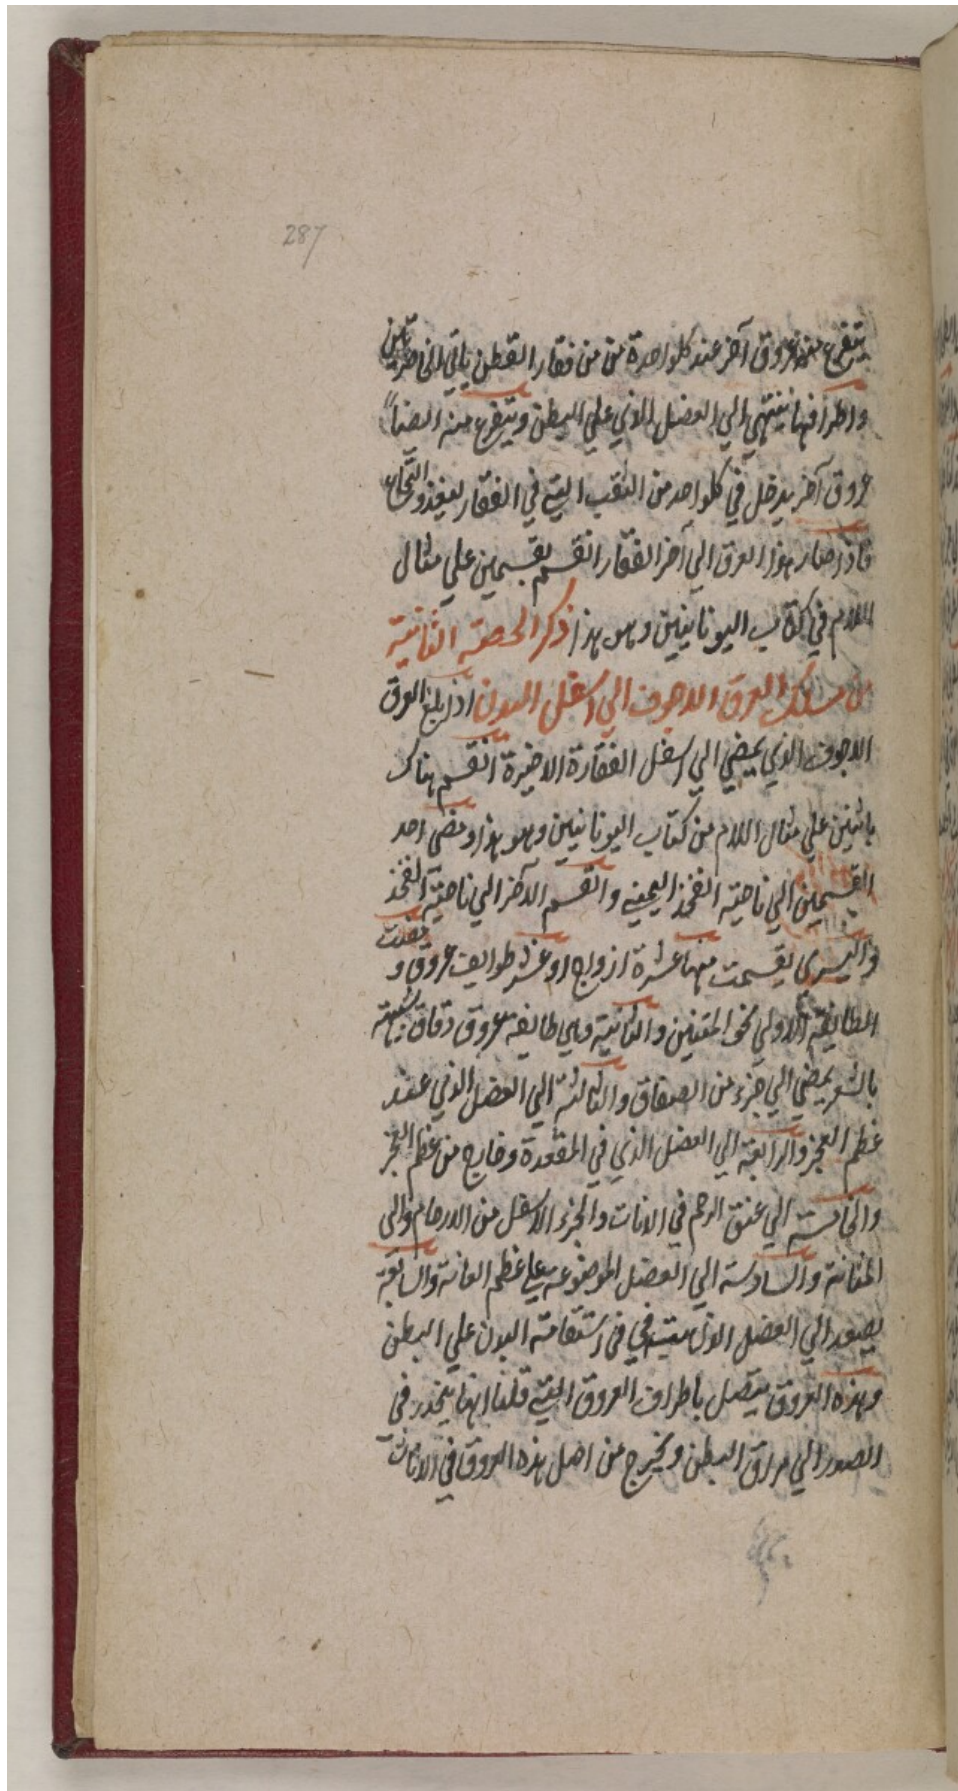 287
يتفرع منه عروق آخر عند كلواحدة من من فقار القطن ياتي الخاصرتين
واطرافها ينتهي الي العضل الذي علي البطن ويتفرع منه ايضاً
عروق آخر يدخل في كلواحد من الثقب التي في الفقار ليغذو النخاع
فاذا صار هذا العرق الي آخر الفقار انقسم بقسمين علي مثال
اللام في كتاب اليونانيين وهو هذا ذكر الحصة الثانية
من مسالك العرق الاجوف الي اسفل البدن اذا بلغ العرق
الاجوف الذي يمضي الي اسفل الفقارة الاخيرة انقسم هناك
باثنين علي مثال اللام من كتاب اليونانيين وهو هذا ومضي احد
القسمين الي ناحية الفخذ اليمني والقسم الآخر الي ناحية الفخذ
واليسري يقسمت منها عشرة ازواج او عشر طوايف عروق و
الطايفة الاولي نحو المتنين والثانية وهي طايفة عروق دقاق شبيهة
بالشعر يمضي الي جزء من الصفاق والثالثة الي العضل الذي عند
عظم العجز والرابعة الي العضل الذي في المقعدة وخارج من عظم العجز
والخامسة الي عنق الرحم في الاناث والجزء الاسفل من الارحام والي
المثانة والسادسة الي العضل الموضوعة علي عظم العانة والسابعة
يصعد الي العضل الذي في استقامة البدن علي البطن
وهذه العروق يتصل باطراف العروق التي قلنا انها ينحدر في
الصدر الي مراق البطن ويخرج من اصل هذه العروق في الاناث